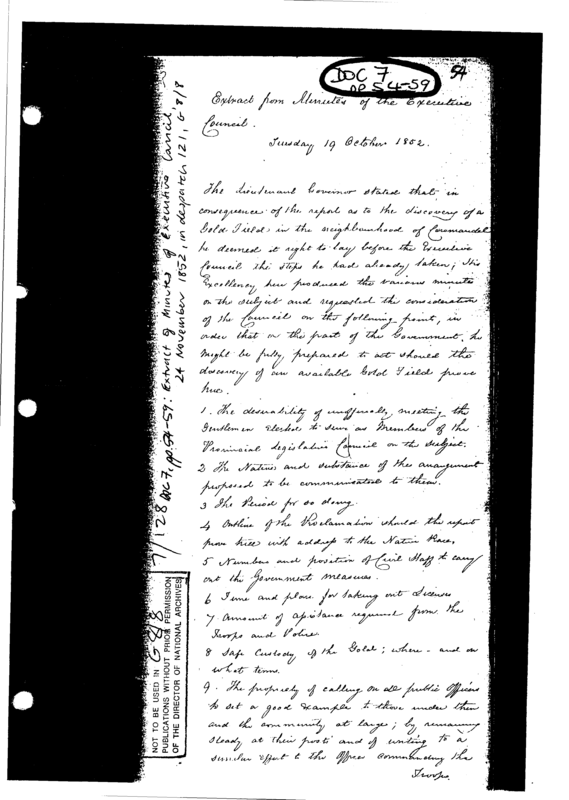 DOC 7
pp 54-59
54
Extract from Minutes of the Executive
Council.
Tuesday 19 October 1852.
The Lieutenant Governor stated that in
consequence of the report as to the discovery of a
Gold Field in the neighbourhood of Coromandel
he deemed it right to lay before the Executive
Council the steps he had already taken; His
Excellency here produced the various minutes
on the subject and requested the consideration
of the Council on the following point, in
order that on the part of the Government, he
might be fully prepared to act should the
discovery of an available Gold Field prove
true.
1. The desirability of unofficially meeting the
Gentlemen elected to serve as Members of the
Provincial Legislative Council on the subject.
2 The Nature and substance of the arrangement
proposed to be communicated to them.
3 The Period for so doing.
4 Outline of the Proclamation should the report
prove true with address to the Native Race,
5 Numbers and position of Civil Staff to carry
out the Government measures.
6 Time and place for taking out Licences
7. Amount of assistance required from the
Troops and Police
8 Safe Custody of the Gold; where - and on
what terms.
9. The propriety of calling on all public Officers
to set a good example to those under them
and the community at large; by remaining
steady at their posts and of writing to a
similar effect to the Officer commanding the
Troops.
7/128 DOC 7, pp. 54-59: Extract of Minutes of Executive Council
24 November 1852, in despatch 121, G 8/8
G 8/8
NOT TO BE USED IN
PUBLICATIONS WITHOUT PRIOR PERMISSION
OF THE DIRECTOR OF NATIONAL ARCHIVES